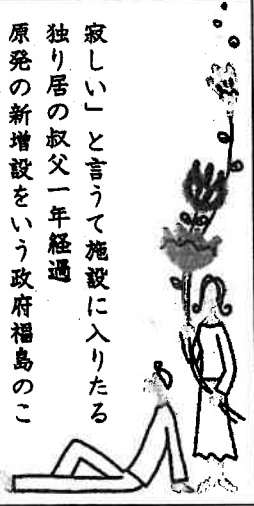 寂しい」と言うて施設に入りたる
独り居の叔父一年経過
原発の新増設をいう政府福島のこ